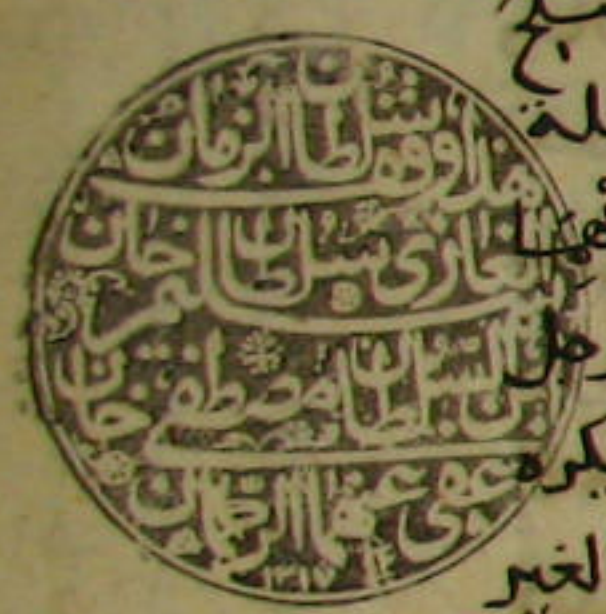 هذا وقف سلطان الزمان
الغازي سلطان سليم خان
بن السلطان مصطفى خان
عفى عنهما الرحمن
١٢١٧
لغير